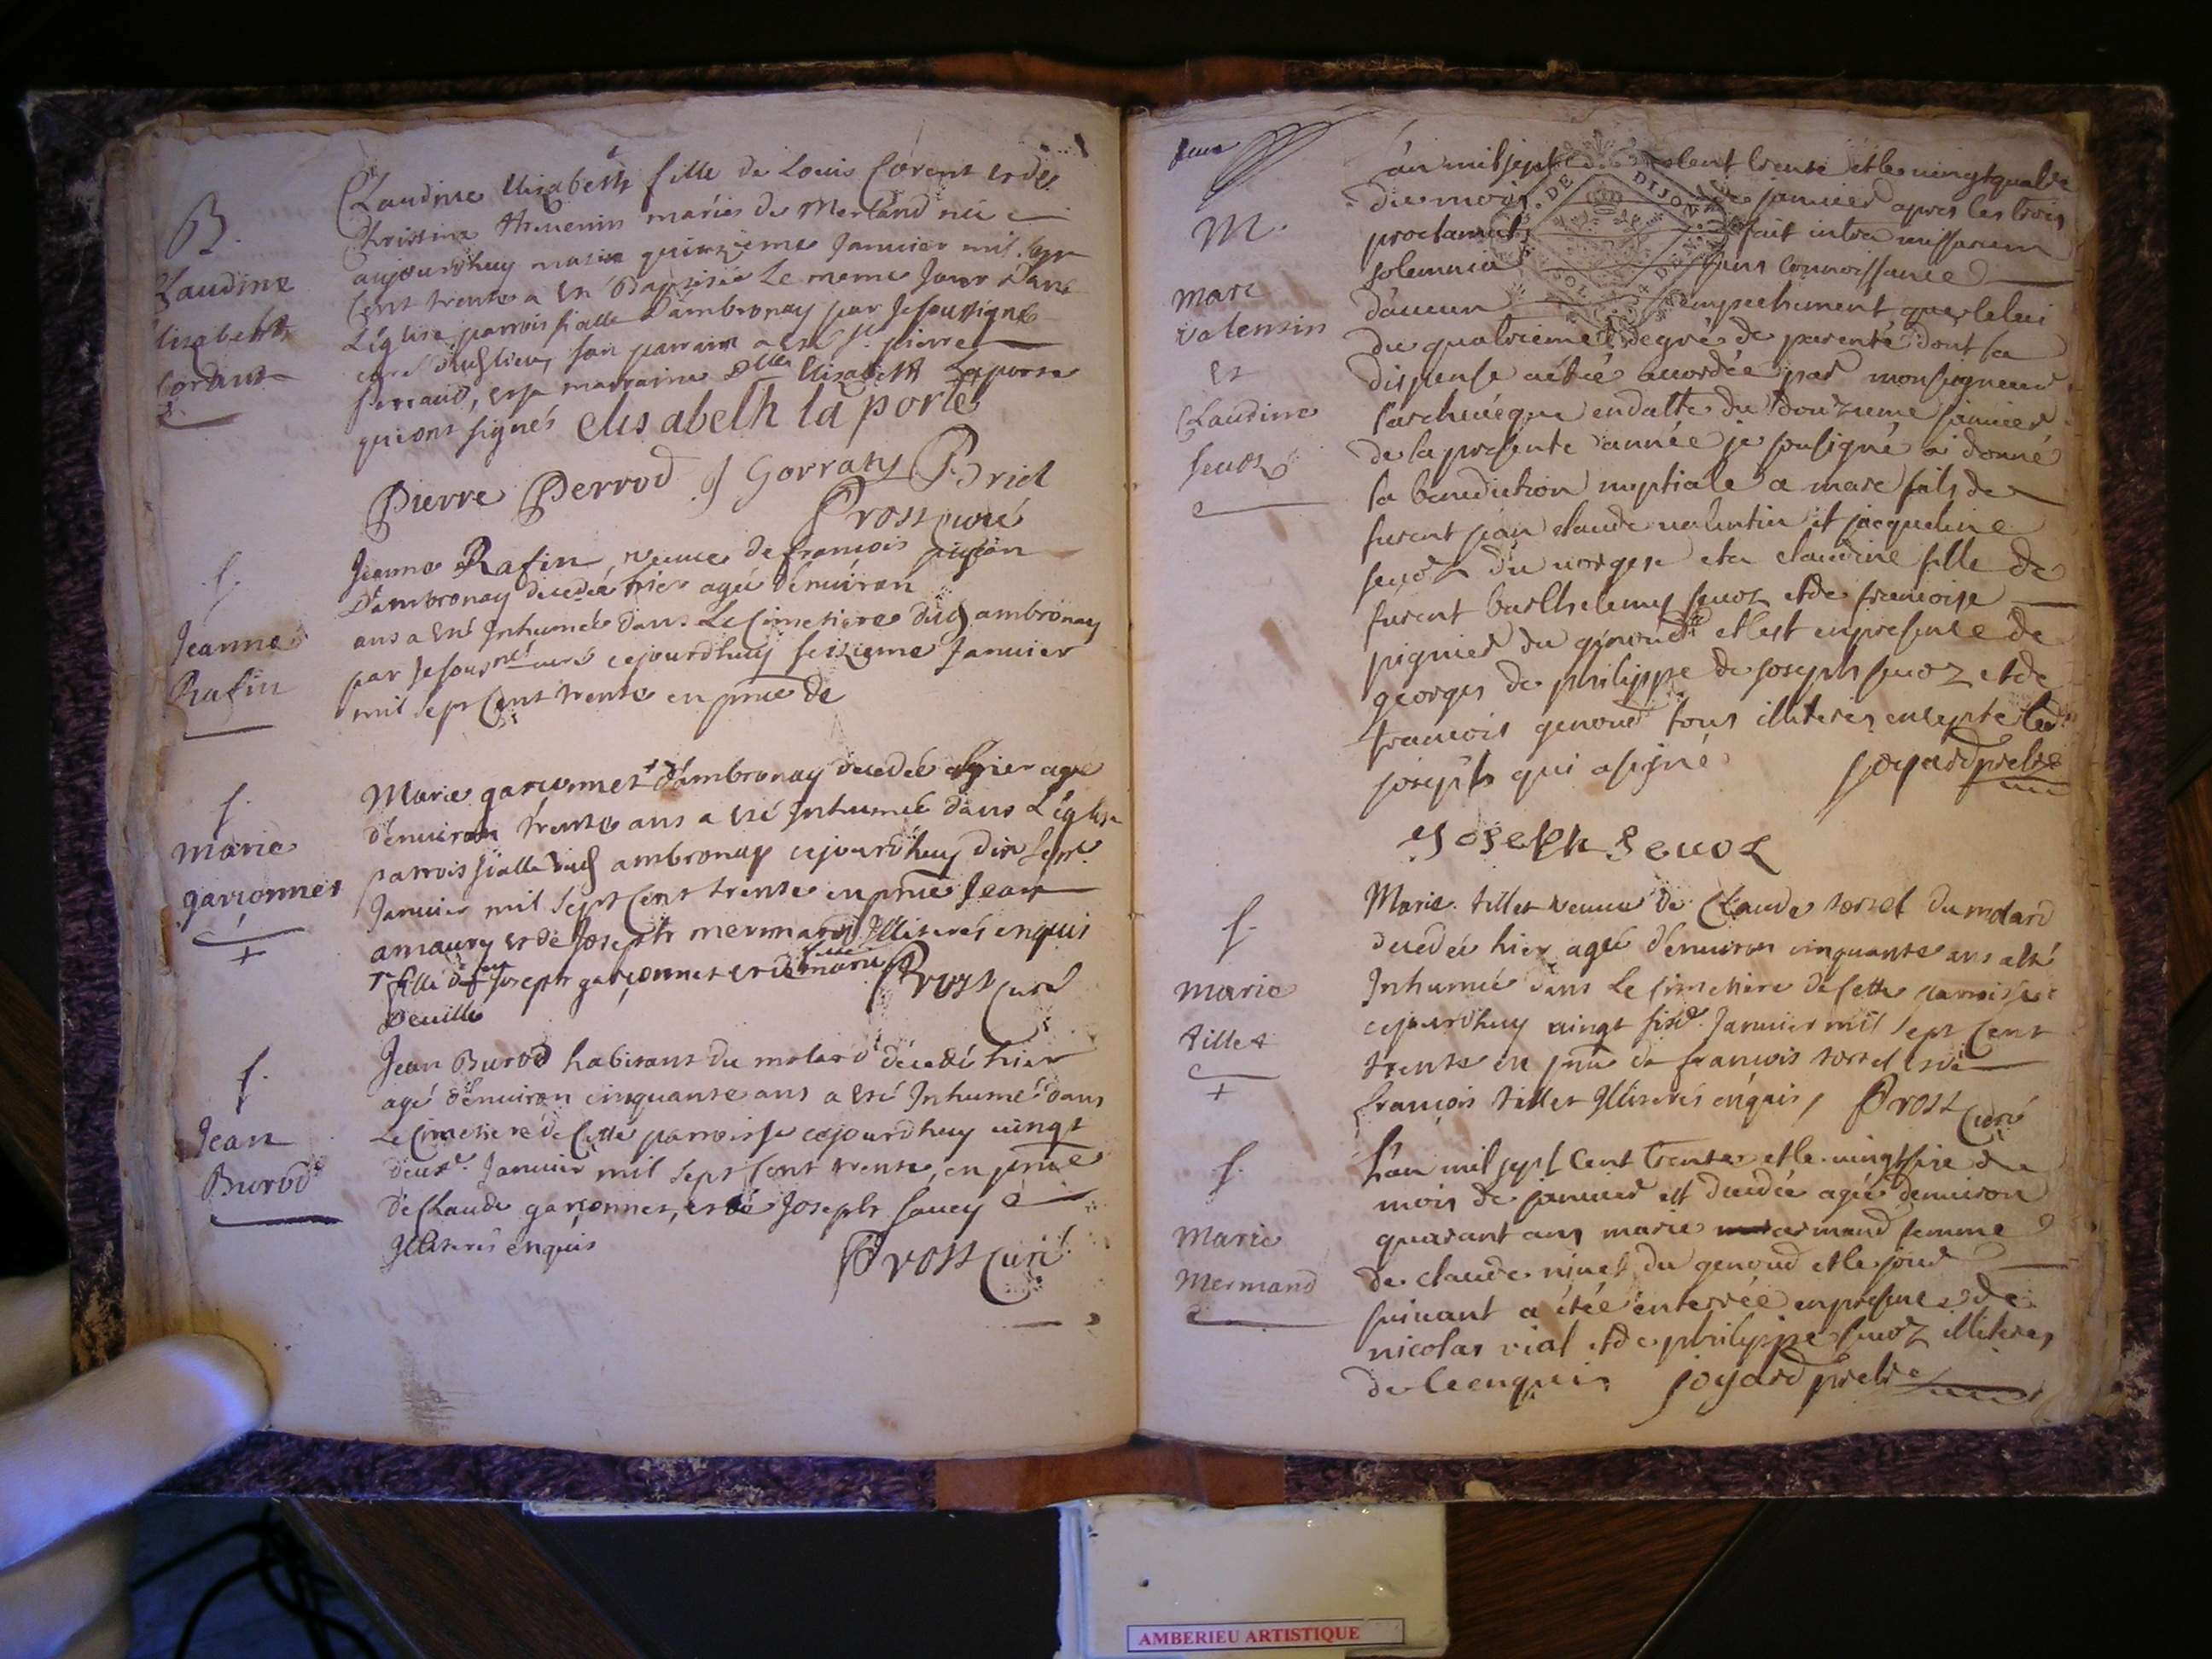 B.
Claudine
Elisabeth
Corent
Claudine Elisabeth fille de Louis Corent et de
Christine Thevenin mariés de Merland née
aujourdhuy matin quinzieme Janvier mil sept
Cent trente a été Baptisée Le meme Jour dans
L'église parroissialle d'ambronay par Je soussigné
curé dud lieu, son parrain a été Sr. pierre
perraud, et sa marraine Dlle Elisabeth Laporte
qui ont signés elisabelh la porte
Pierre Perrod J Gorraty Briel
Prost curé
f.
Jeanne
Rafin
Jeanne Rafin, veuve de francois
D'ambronay decedée hier agée d'environ
ans a été Inhumée dans Le Cimetiere dud ambronay
par Je sousné curé cejourdhuy seizieme Janvier
mil sept Cent trente en pnce de
f.
Marie
garconnet
+
Marie garconnet d'ambronay decedée hier agée
d'environ trente ans a été Inhumée dans L'église
parroissialle dud ambronay cejourdhuy dix sept
Janvier mil sept Cent trente en pnce Jean
amaury et de Joseph mermand Illiterés enquis
fille de feu Joseph garconnet et de marie
Prost Curé
f.
Jean
Burod
Jean Burod habitant du molard décédé hier
agé d'environ cinquante ans a été Inhumé dans
Le Cimetiere de Cette parroisse cejourdhuy vingt
deuxe. Janvier mil sept Cent trente, en pnce
de Claude garconnet, et de Joseph Savey
Illiterés enquis
Prost Curé
deux
M.
Marc
valensin
et
Claudine
sevoz
DE DIJON
l'an mil sept cent trente et le vingt quatre
du mois de janvier apres les trois
proclamats fait intra missarum
solemnia sans connoissance
d'aucun empechement que celui
du quatrieme degré de parenté dont la
dispense a été accordée par monseigneur
l'archevêque en datte du douzieme janvier
de la presente année je sousigné ai donné
la benediction nuptiale a marc fils de
furent jean claude valentin et jacqueline
sevoz du vorgey et a claudine fille de
furent barthelemy sevoz et de francoise
pignier du genoud et c'est en presence de
georges de philippe de joseph sevoz et de
francois genoud tous illiteres excepte led
joseph qui a signé joyard pretre
Joseph Sevoz
f.
Marie
tillet
+
Marie tillet veuve de Claude torrel du molard
decedée hier agée d'environ cinquante ans a été
Inhumée dans Le Cimetiere de Cette parroisse
cejourdhuy vingt sixe. Janvier mil sept Cent
trente en pnce de francois torrel et de
francois tillet Illiterés enquis, Prost Curé
f.
Marie
Mermand
L'an mil sept Cent trente et le vingt sixe du
mois de janvier est decedée agée d'environ
quarant ans marie mermand femme
de claude ninet du genoud et le jour
suivant a étée enterrée en presence de
nicolas vial et de philippe sevoz illiteres
de ce enquis joyard pretre
AMBERIEU ARTISTIQUE